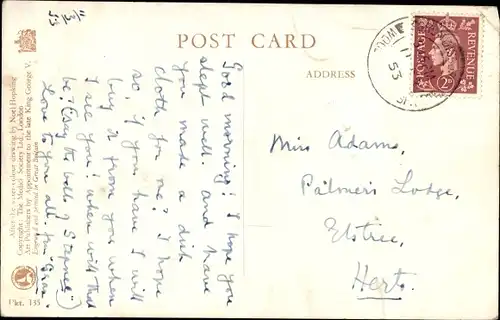 POST CARD
ADDRESS
Good morning! I hope you
slept well and have
you made a dish
cloth for me? I hope
so, if you have I will
buy it from you when
I see you! when will that
be? (say the bells of Stepney)
Love to you all. fm "Gran.
Miss Adams,
Palmers Lodge,
Elstree,
Herts.
POSTAGE
REVENUE
2D
53
After the water-colour drawing by Noel Hopking
Copyright: The Medici Society Ltd., London
Art Publishers by Appointment to the late King George V.
Engraved and printed in Great Britain
Pkt. 155